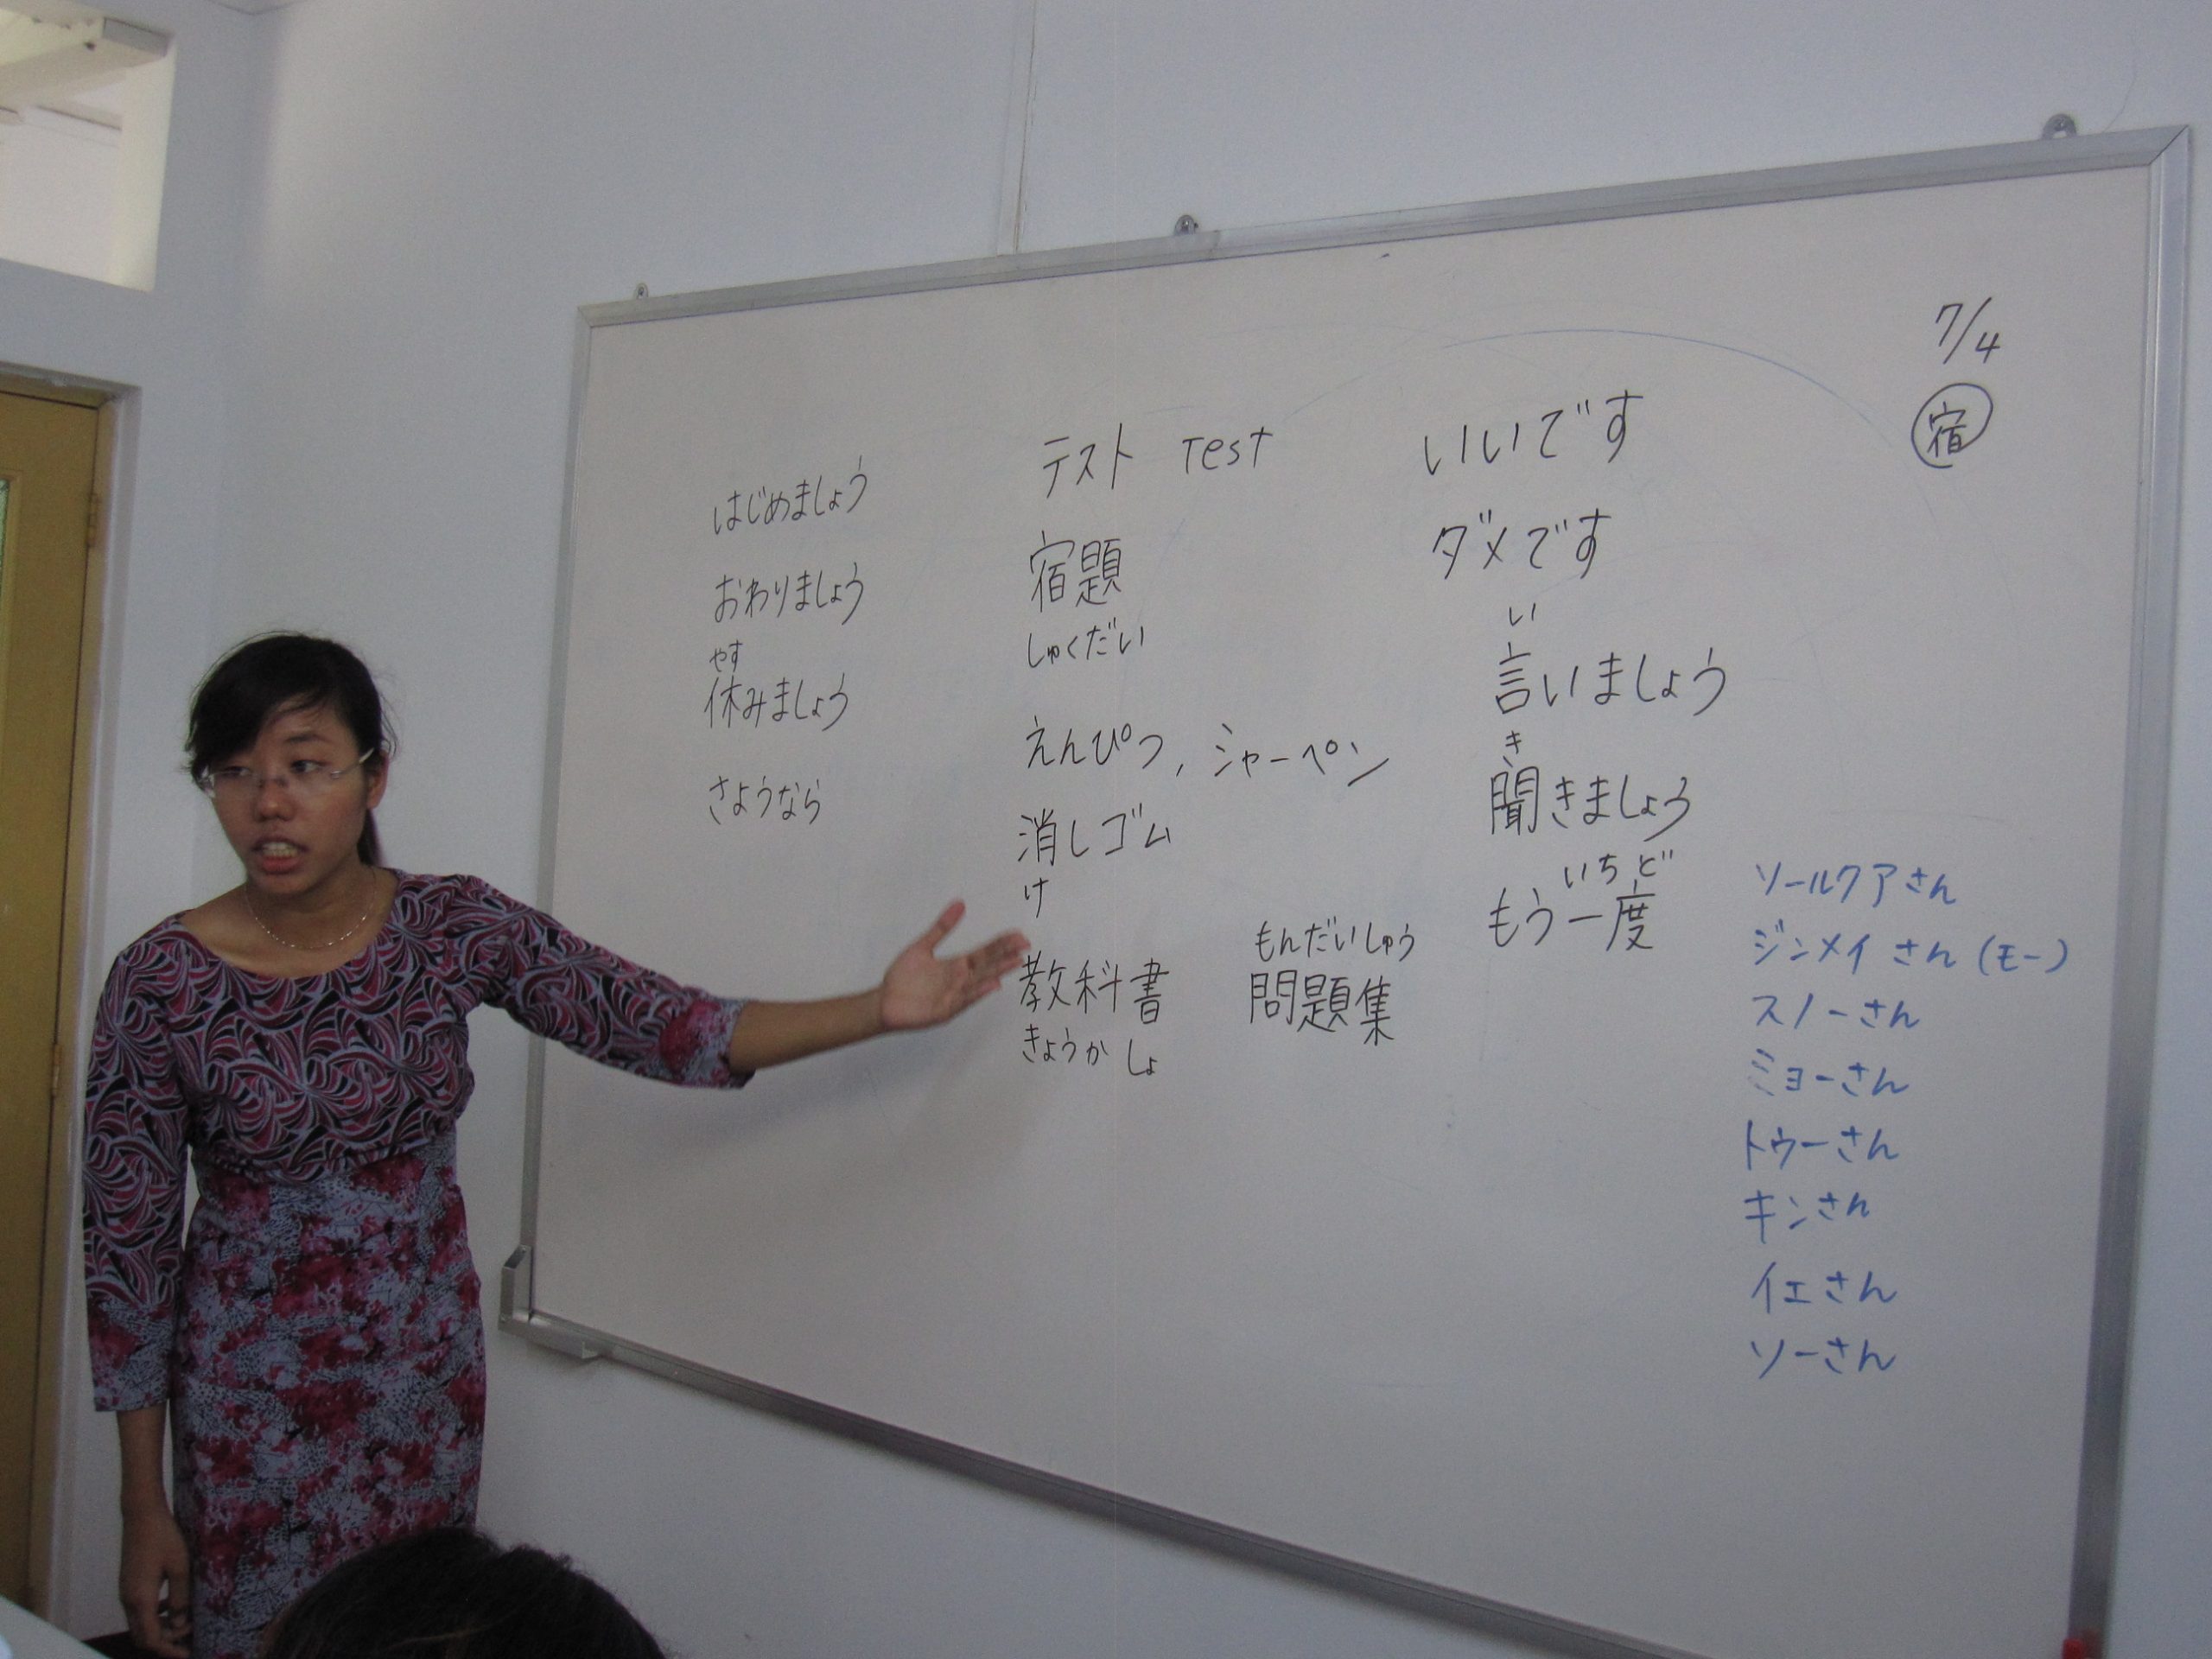 はじめましょう
おわりましょう
やす
休みましょう
さようなら
テスト Test
宿題
しゅくだい
えんぴつ, シャーペン
消しゴム
け
もんだいしゅう
教科書 問題集
きょうかしょ
いいです
ダメです
い
言いましょう
き
聞きましょう
いちど
もう一度
7/4
宿
ソールクアさん
ジンメイさん (モー)
スノーさん
ミョーさん
トゥーさん
キンさん
イェさん
ソーさん